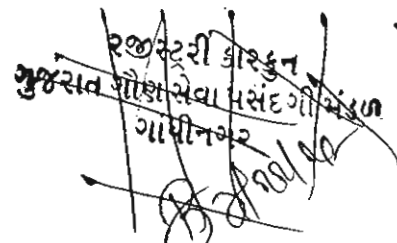 રજીસ્ટ્રી કારકુન
ગુજરાત ગૌણ સેવા પસંદગી મંડળ
ગાંધીનગર